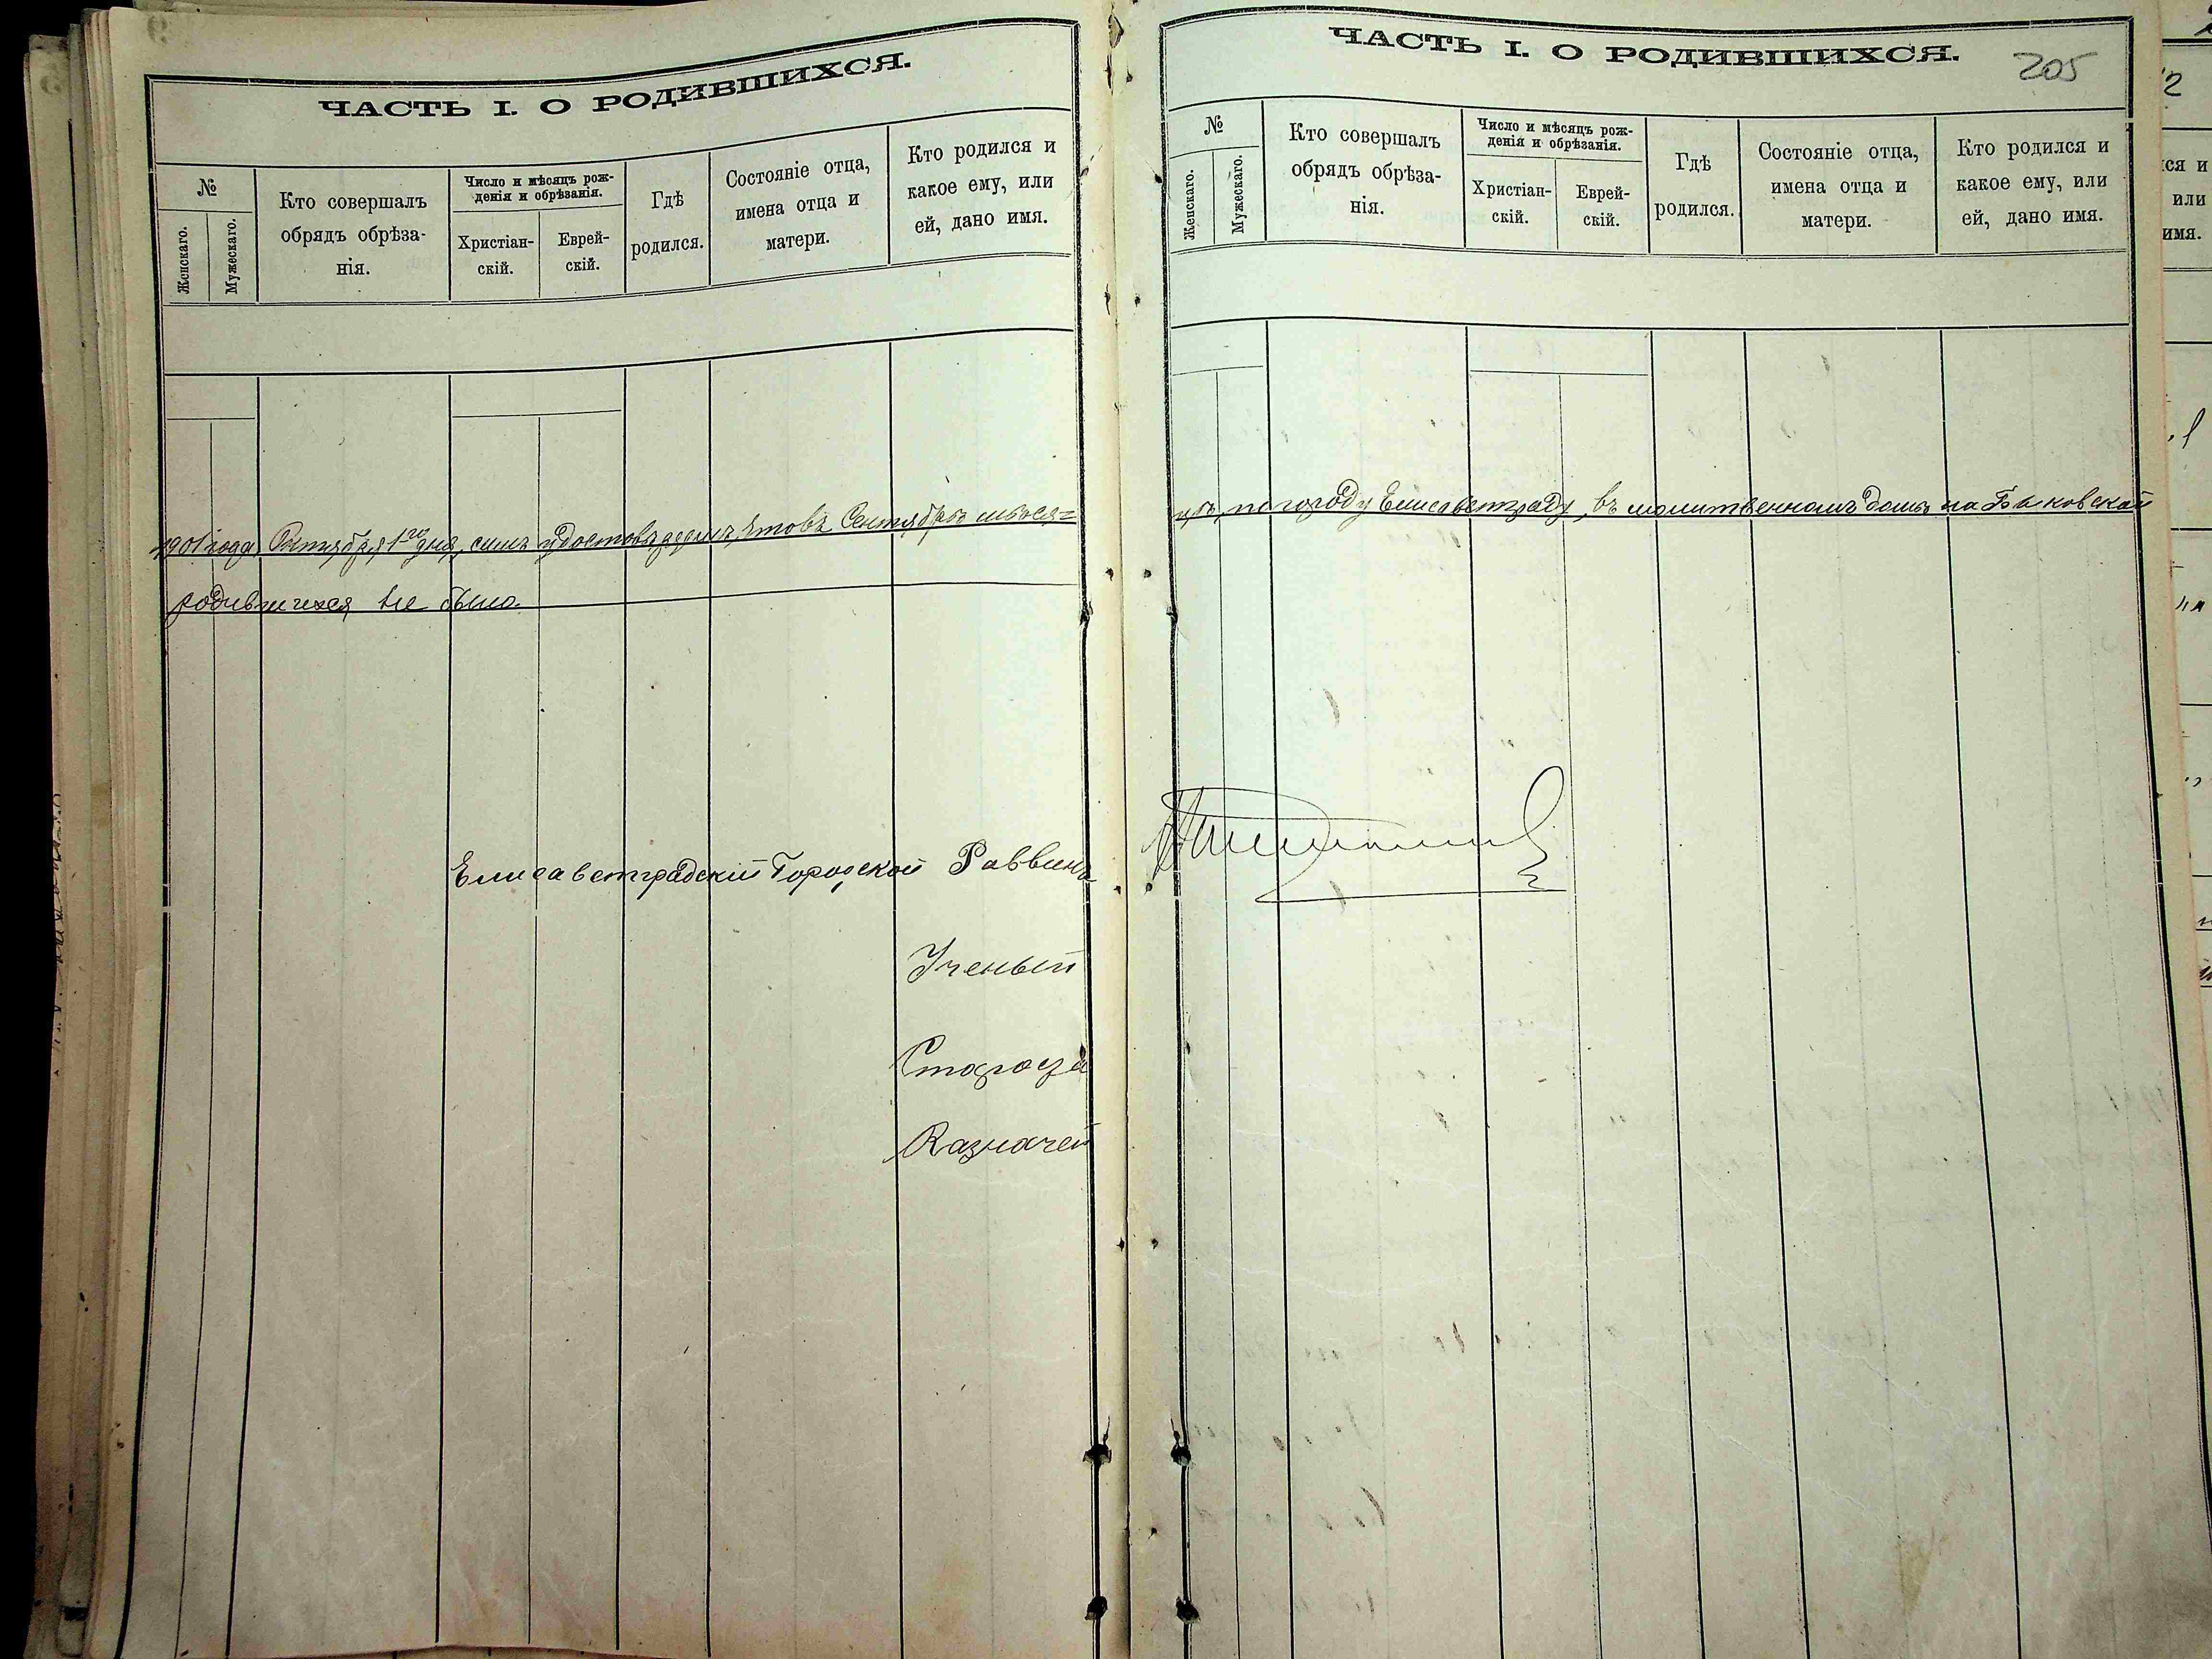 ЧАСТЬ I. О РОДИВШИХСЯ.
№
Женскаго.
Мужескаго.
Кто совершалъ
обрядъ обрѣза-
нія.
Число и мѣсяцъ рож-
денія и обрѣзанія.
Христіан-
скій.
Еврей-
скій.
Гдѣ
родился.
Состояніе отца,
имена отца и
матери.
Кто родился и
какое ему, или
ей, дано имя.
1901 года Октября 1го дня, симъ удостовѣряемъ, что въ Сентябрѣ мѣся=
родившихся не было.
Елисаветградскій Городской Раввинъ
Ученый
Староста
Казначей
ЧАСТЬ I. О РОДИВШИХСЯ.
205
№
Женскаго.
Мужескаго.
Кто совершалъ
обрядъ обрѣза-
нія.
Число и мѣсяцъ рож-
денія и обрѣзанія.
Христіан-
скій.
Еврей-
скій.
Гдѣ
родился.
Состояніе отца,
имена отца и
матери.
Кто родился и
какое ему, или
ей, дано имя.
цѣ, по городу Елисаветграду, въ молитвенномъ домѣ на Быковской
или
имя.